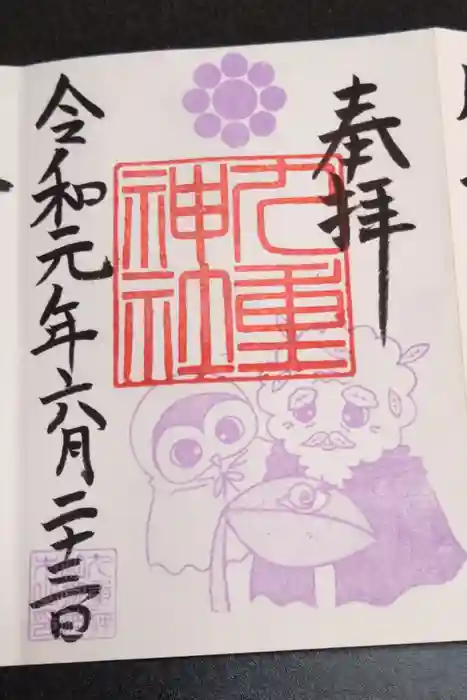 奉拝
九重
神社
令和元年六月二十三日